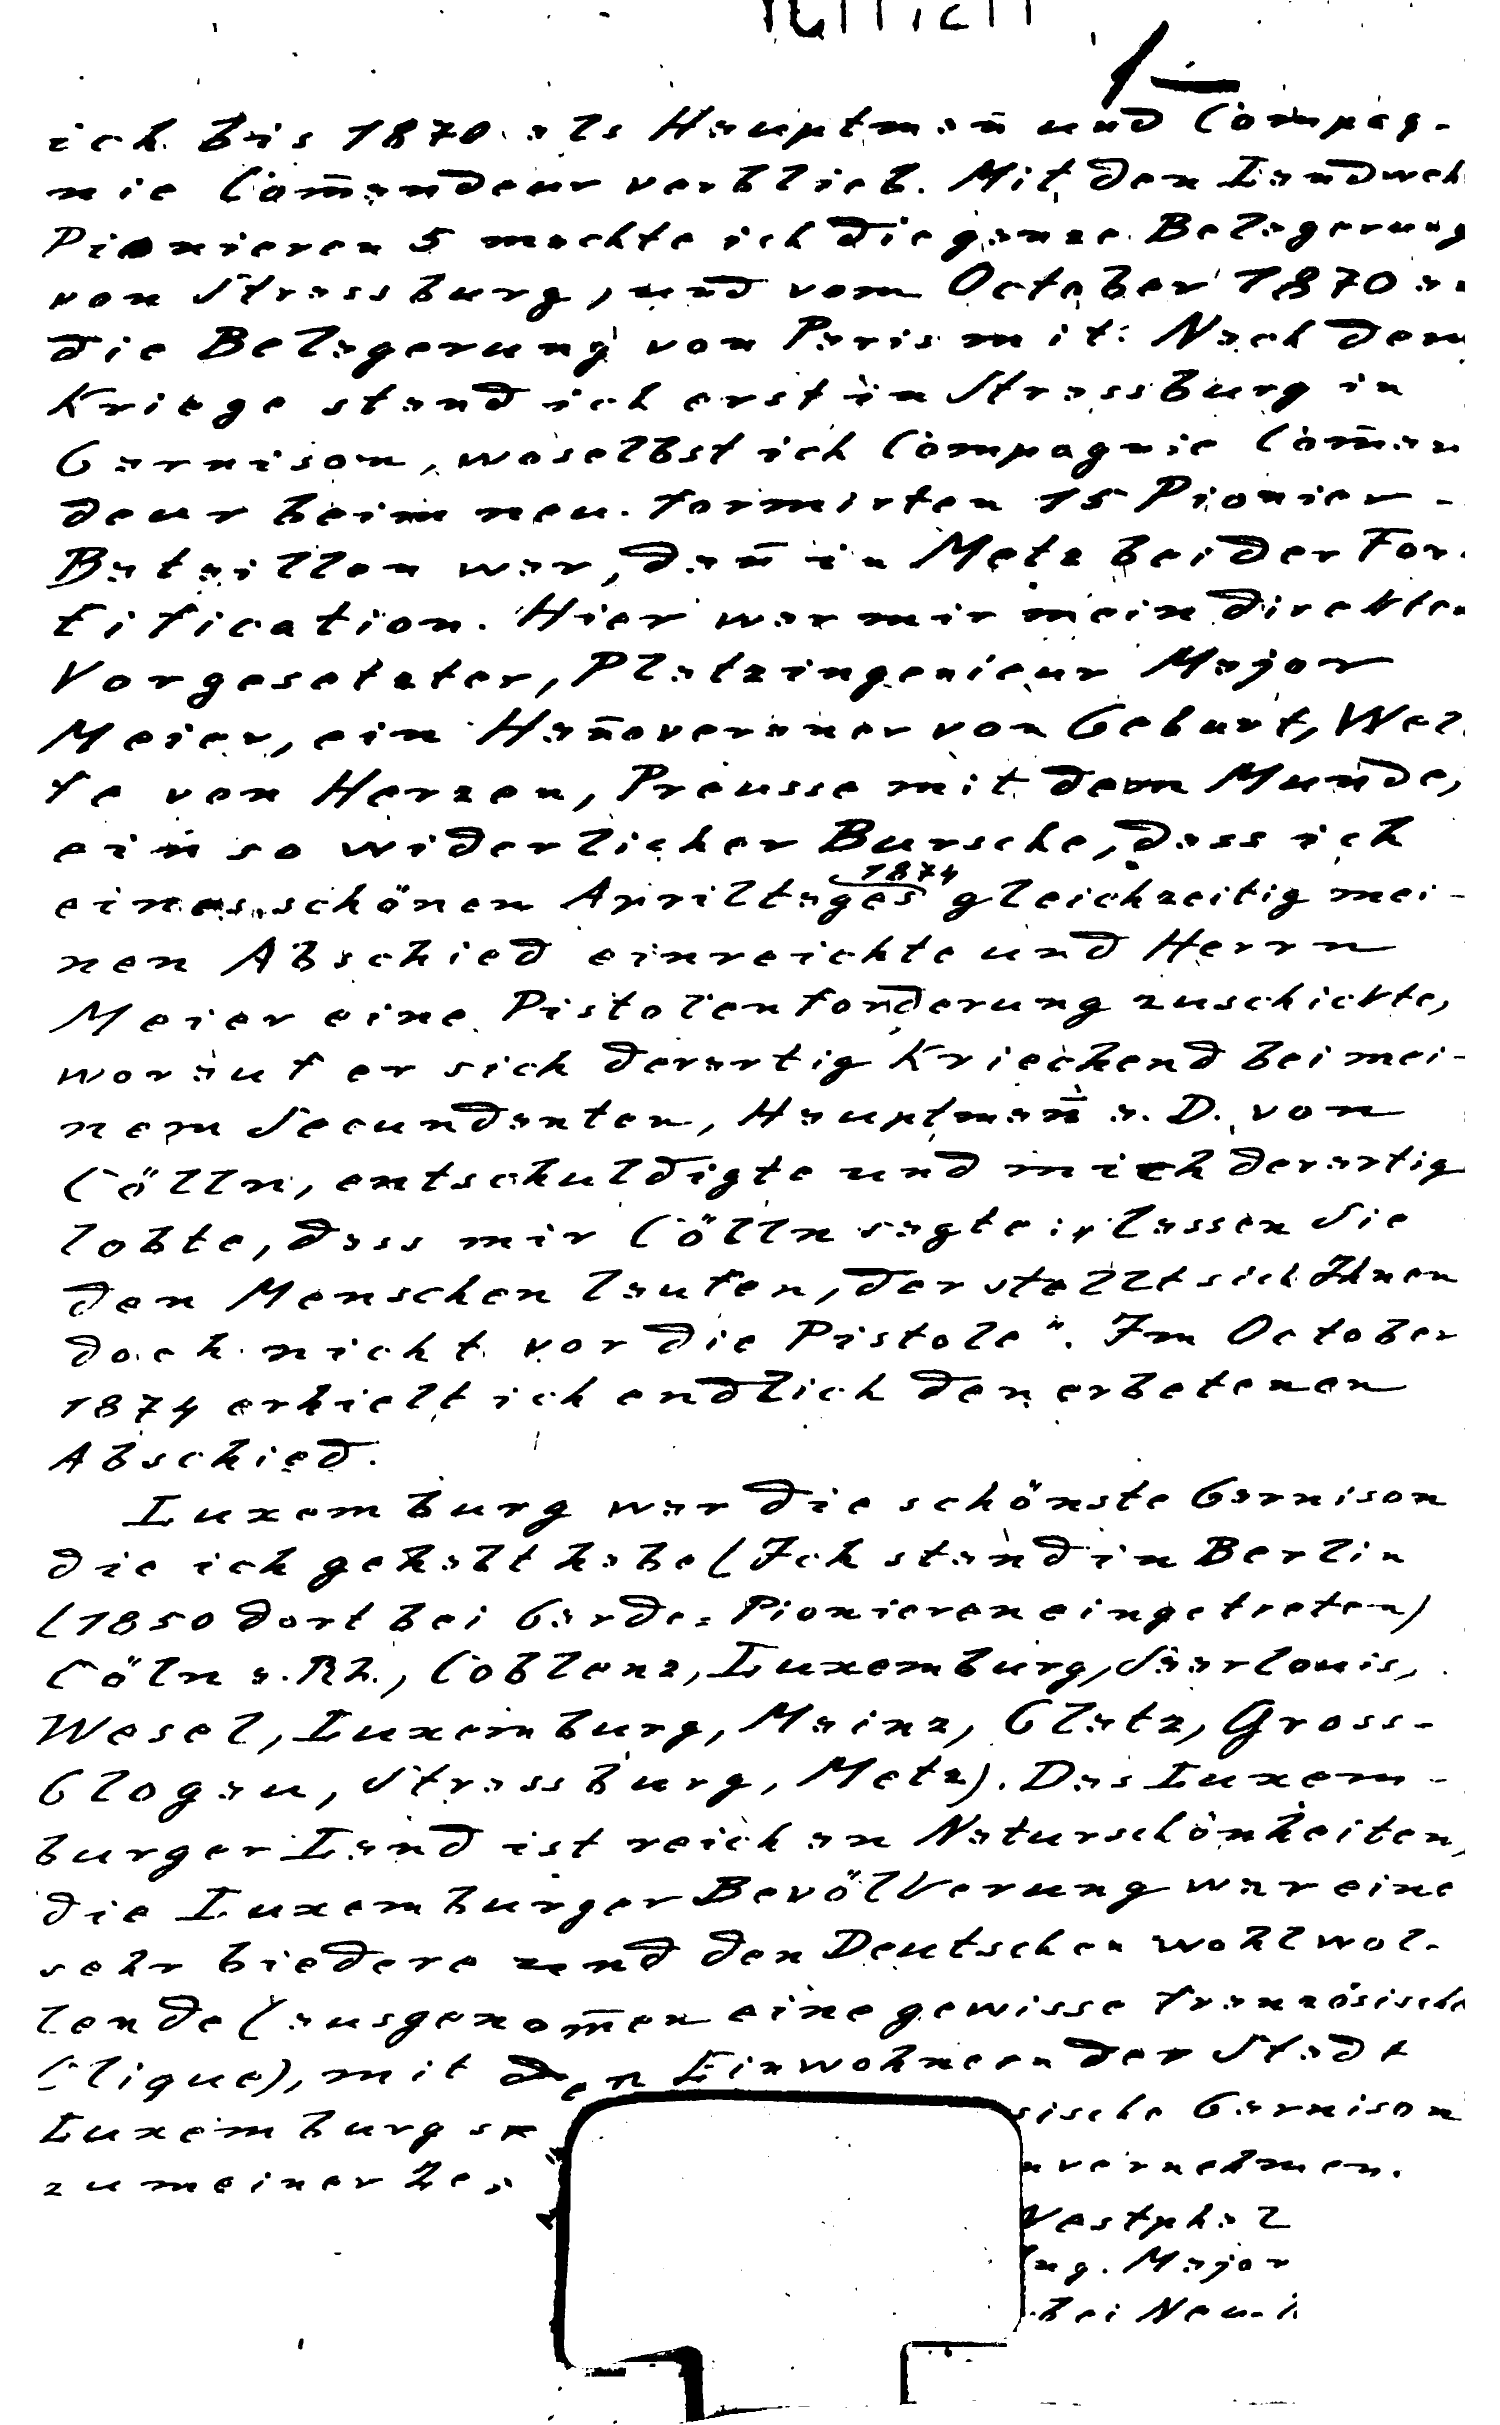 ich bis 1870 als Hauptman̄ und Compag-
nie Com̄andeur verblieb. Mit den Landweh
Pionieren 5 machte ich die ganze Belagerung
von Strassburg, und vom October 1870 an
die Belagerung von Paris mit. Nach dem
Kriege stand ich erst in Strassburg in
Garnison, woselbst ich Compagnie Com̄an
deur beim neu formirten 15 Pionier-
Bataillon war, dan̄ in Metz bei der For-
tification. Hier war mir mein direkter
Vorgesetzter, Platzingenieur Major
Meier, ein Han̄overaner von Geburt, Wel-
fe von Herzen, Preusse mit dem Munde,
ein so widerlicher Bursche, dass ich
eines schönen Apriltages 1874 gleichzeitig mei-
nen Abschied einreichte und Herrn
Meier eine Pistolenforderung zuschickte,
worauf er sich derartig kriechend bei mei-
nem Secundanten, Hauptman̄ a. D. von
Cölln, entschuldigte und mich derartig
lobte, dass mir Cölln sagte: „lassen Sie
den Menschen laufen, der stellt sich Ihnen
doch nicht vor die Pistole". Im October
1874 erhielt ich endlich den erbetenen
Abschied.
Luxemburg war die schönste Garnison
die ich gehabt habe (Ich stand in Berlin
(1850 dort bei Garde-Pionieren eingetreten)
Cöln a. Rh., Coblenz, Luxemburg, Saarlouis,
Wesel, Luxemburg, Mainz, Glatz, Gross-
Glogau, Strassburg, Metz). Das Luxem-
burger Land ist reich an Naturschönheiten,
die Luxemburger Bevölkerung war eine
sehr biedere und den Deutschen wohlwol-
lende (ausgenom̄en eine gewisse französische
Clique), mit den Einwohnern der Stadt
Luxemburg sische Garnison
zu meiner nvernehmen.
Westphal
ng. Major
bei Neu-